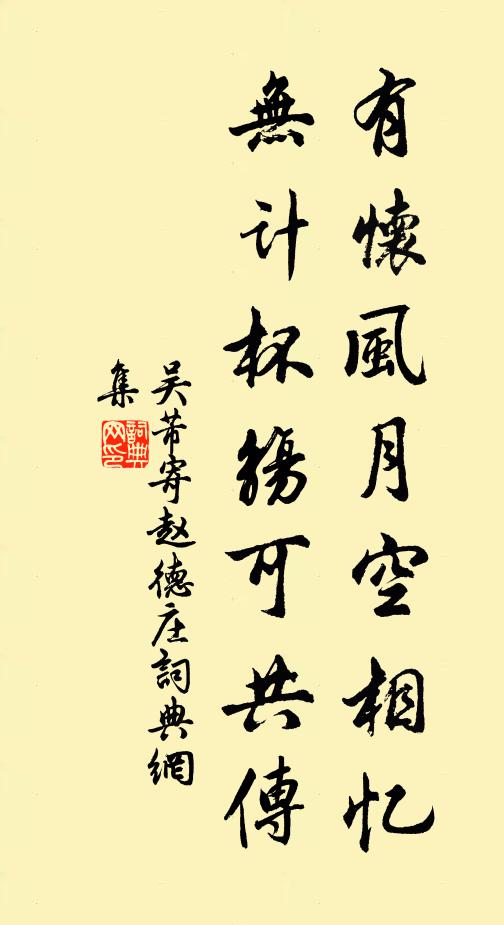 有懷風月空相忆
無计杯觴可共傳
吴芾寄赵德庄詞典網
集
詞典
网印